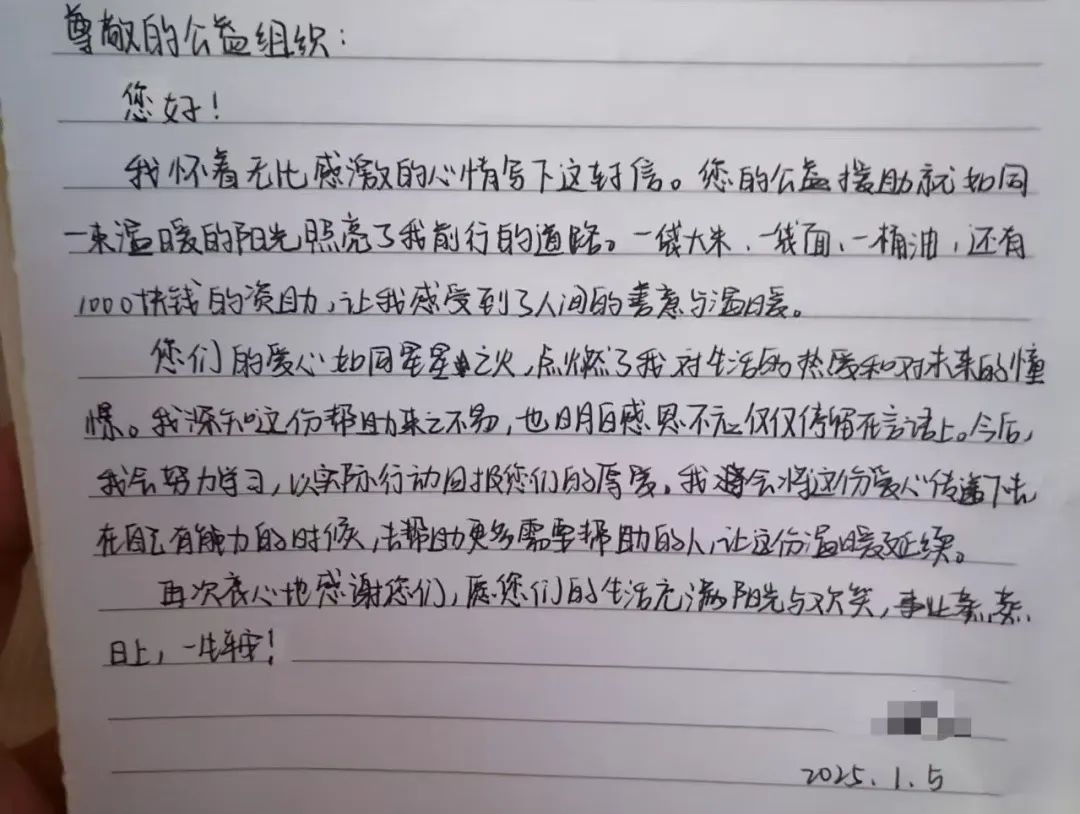 尊敬的公益组织：
您好！
我怀着无比感激的心情写下这封信。您的公益援助就如同
一束温暖的阳光照亮了我前行的道路。一袋大米、一袋面、一桶油，还有
1000块钱的资助，让我感受到了人间的善意与温暖。
您们的爱心如同星星之火，点燃了我对生活的热爱和对未来的憧
憬。我深知这份帮助来之不易，也明白感恩不应仅仅停留在言语上。今后，
我会努力学习，以实际行动回报您们的厚爱。我会将这份爱心传递下去
在自己有能力的时候，去帮助更多需要帮助的人，让这份温暖延续。
再次衷心地感谢您们，愿您们的生活充满阳光与欢笑，事业蒸蒸
日上，一生平安！
2025.1.5